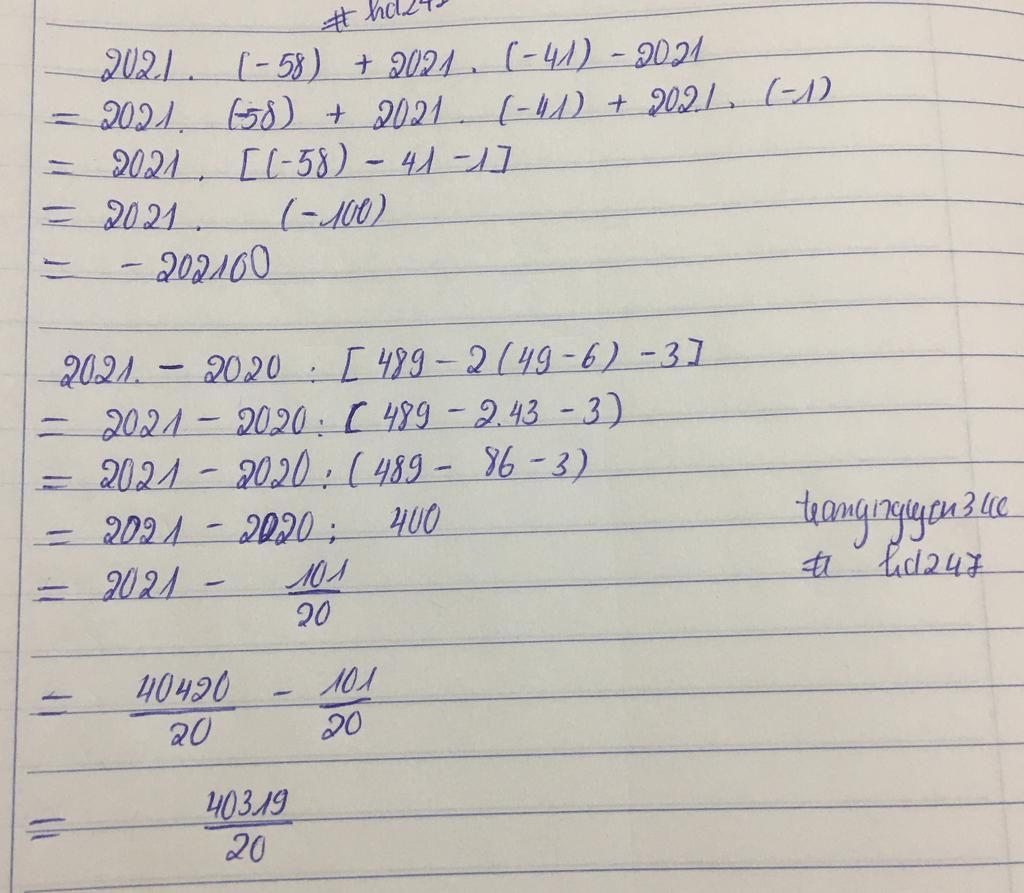 # hd247
2021. (-58) + 2021. (-41) - 2021
= 2021. (-58) + 2021. (-41) + 2021. (-1)
= 2021. [(-58) - 41 -1]
= 2021. (-100)
= - 202100
2021. - 2020 : [489 - 2(49-6) -3]
= 2021 - 2020 : [489 - 2.43 - 3)
= 2021 - 2020 : (489 - 86 - 3)
= 2021 - 2020 : 400
= 2021 - 101/20
= 40420/20 - 101/20
= 40319/20
# hd247